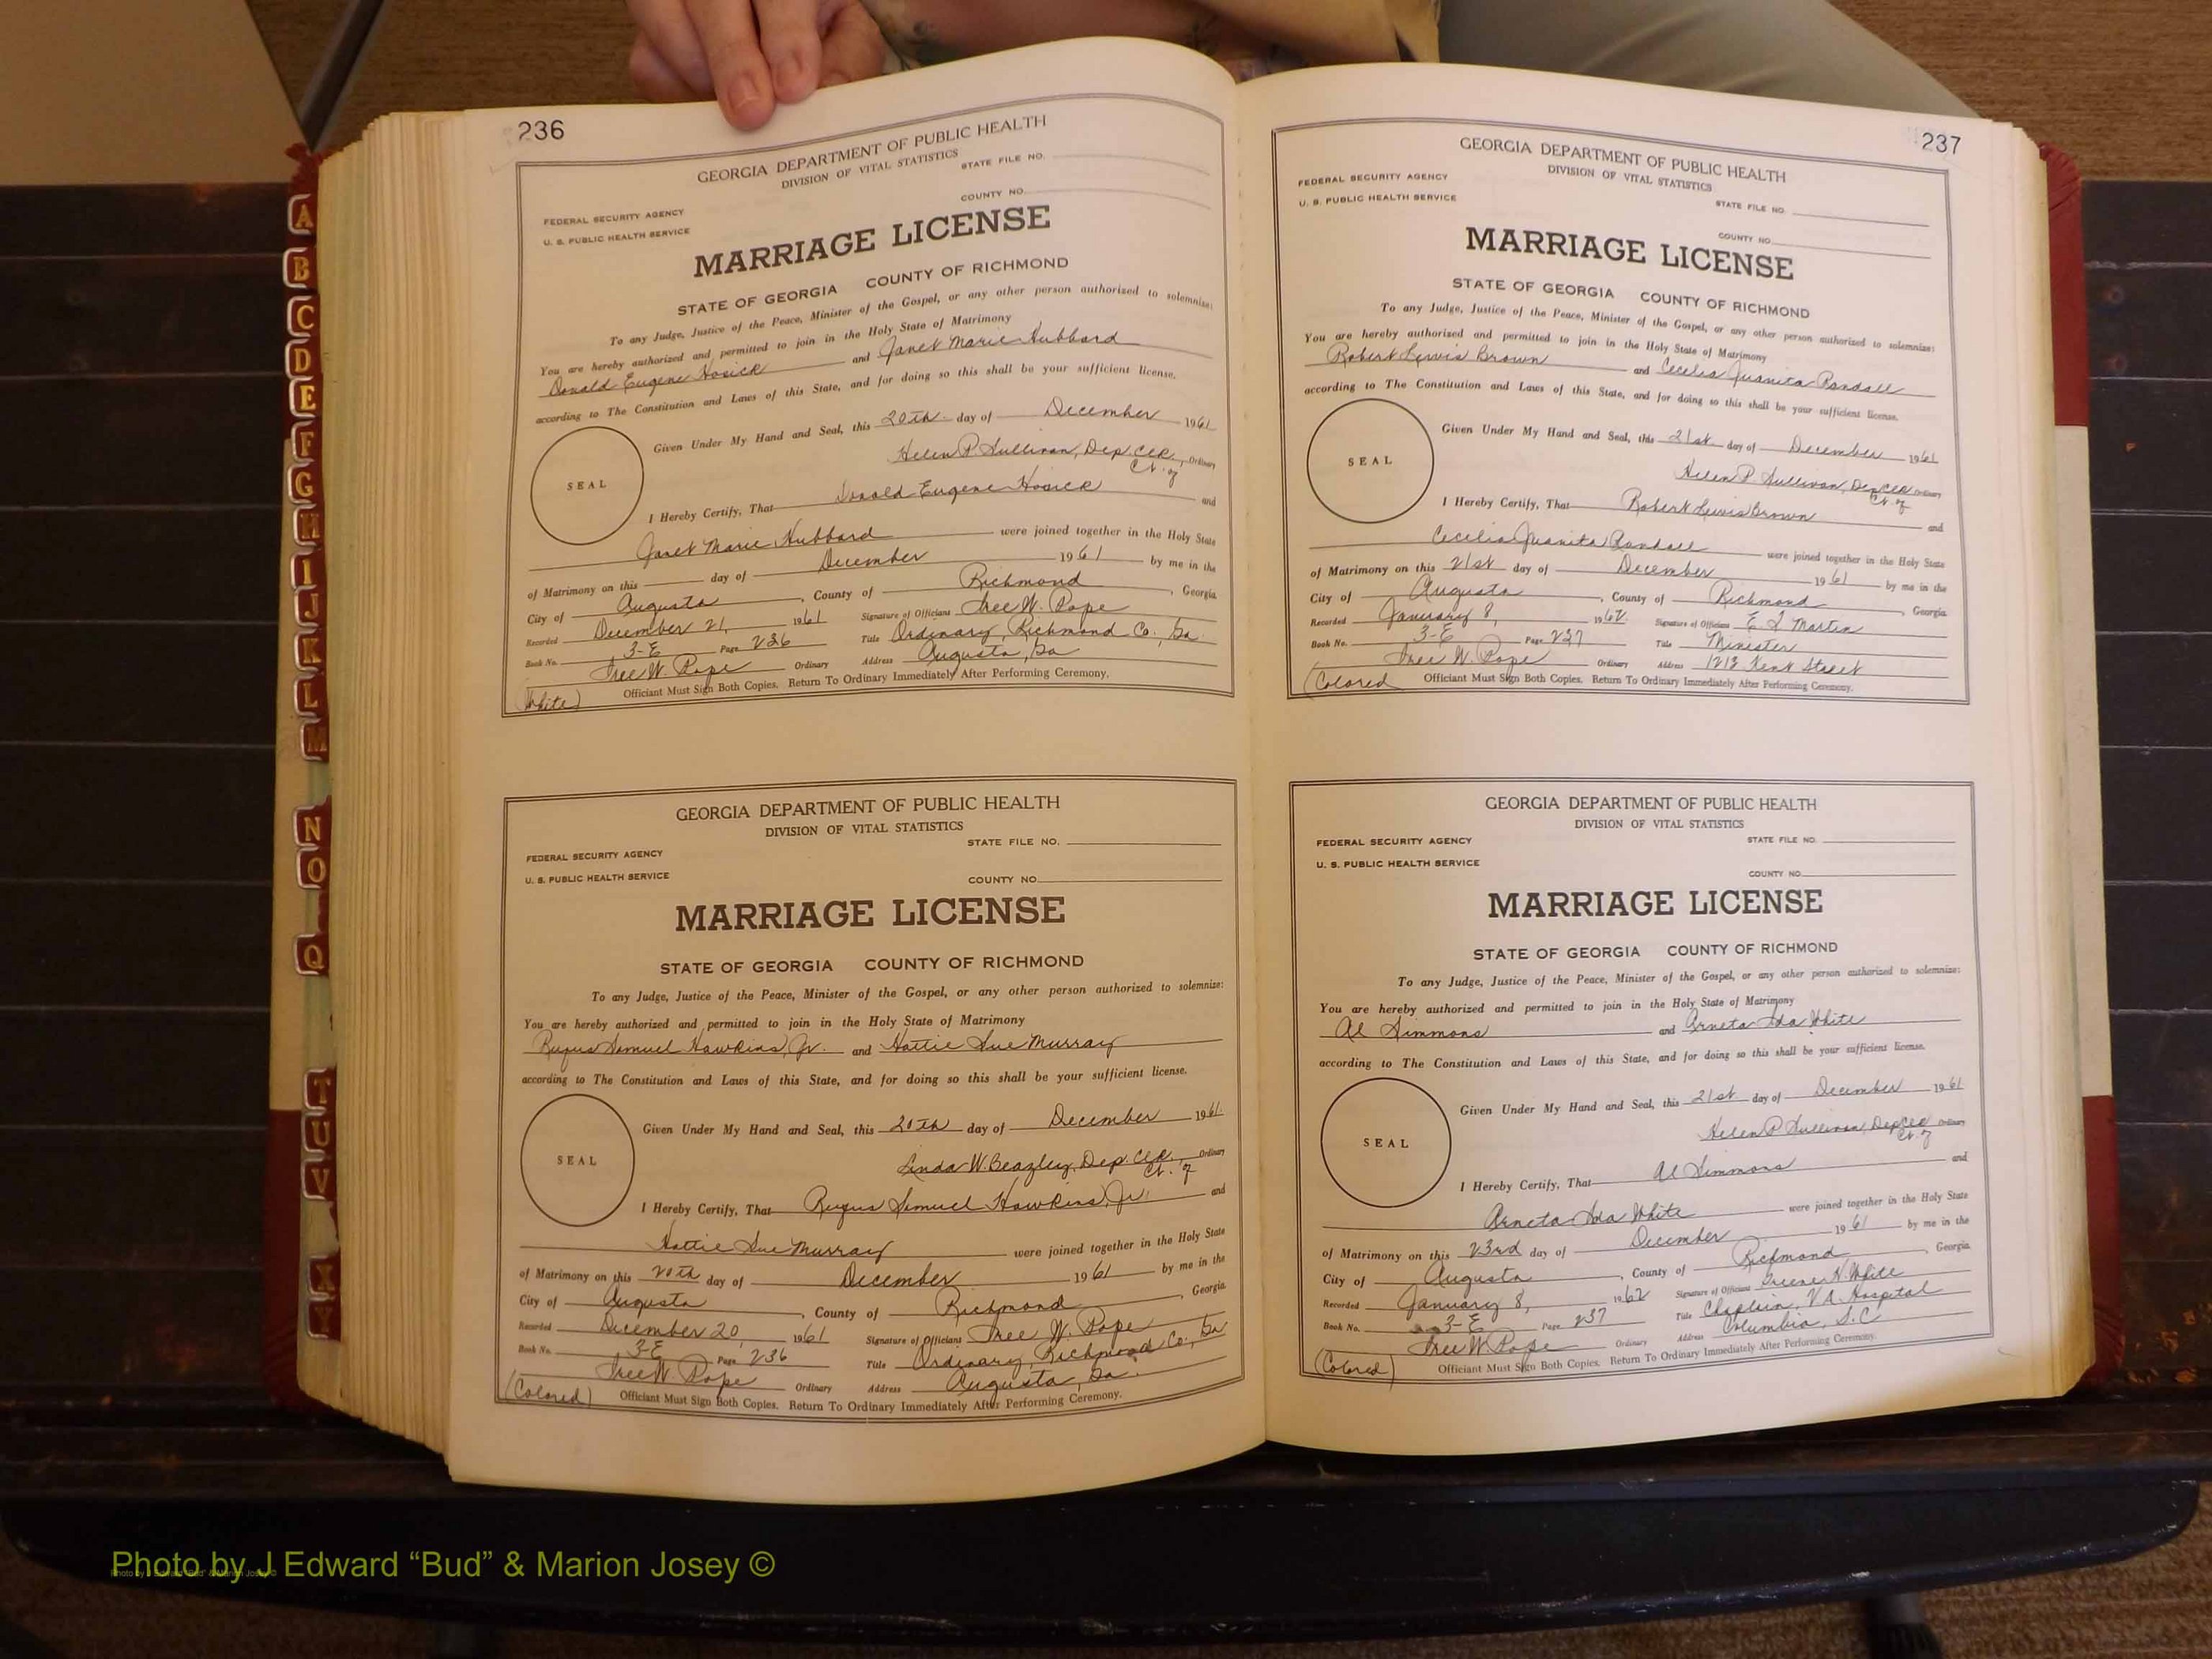 236
GEORGIA DEPARTMENT OF PUBLIC HEALTH
DIVISION OF VITAL STATISTICS
STATE FILE NO.
COUNTY NO.
FEDERAL SECURITY AGENCY
U. S. PUBLIC HEALTH SERVICE
MARRIAGE LICENSE
STATE OF GEORGIA COUNTY OF RICHMOND
To any Judge, Justice of the Peace, Minister of the Gospel, or any other person authorized to solemnize:
You are hereby authorized and permitted to join in the Holy State of Matrimony
Donald Eugene Hosick and Janet Marie Hubbard
according to The Constitution and Laws of this State, and for doing so this shall be your sufficient license.
Given Under My Hand and Seal, this 20th day of December 1961
Helen P. Sullivan, Dep. Clk. Ordinary
Ct. of
SEAL
I Hereby Certify, That Donald Eugene Hosick and
Janet Marie Hubbard were joined together in the Holy State
of Matrimony on this day of December 1961 by me in the
City of Augusta, County of Richmond, Georgia.
Recorded December 21, 1961 Signature of Officiant W. Pope
Book No. 3-E Page 236 Title Ordinary, Richmond Co., Ga.
W. Pope Ordinary Address Augusta, Ga
(White) Officiant Must Sign Both Copies. Return To Ordinary Immediately After Performing Ceremony.
GEORGIA DEPARTMENT OF PUBLIC HEALTH
DIVISION OF VITAL STATISTICS
STATE FILE NO.
FEDERAL SECURITY AGENCY
U. S. PUBLIC HEALTH SERVICE
COUNTY NO.
MARRIAGE LICENSE
STATE OF GEORGIA COUNTY OF RICHMOND
To any Judge, Justice of the Peace, Minister of the Gospel, or any other person authorized to solemnize:
You are hereby authorized and permitted to join in the Holy State of Matrimony
Rufus Samuel Hawkins, Jr. and Hattie Sue Murray
according to The Constitution and Laws of this State, and for doing so this shall be your sufficient license.
Given Under My Hand and Seal, this 20th day of December 1961
Linda W. Beazley, Dep. Clk. Ordinary
Ct. of
SEAL
I Hereby Certify, That Rufus Samuel Hawkins, Jr. and
Hattie Sue Murray were joined together in the Holy State
of Matrimony on this 20th day of December 1961 by me in the
City of Augusta, County of Richmond, Georgia.
Recorded December 20, 1961 Signature of Officiant W. Pope
Book No. 3-E Page 236 Title Ordinary, Richmond Co., Ga
W. Pope Ordinary Address Augusta, Ga.
(Colored) Officiant Must Sign Both Copies. Return To Ordinary Immediately After Performing Ceremony.
237
GEORGIA DEPARTMENT OF PUBLIC HEALTH
DIVISION OF VITAL STATISTICS
FEDERAL SECURITY AGENCY
U. S. PUBLIC HEALTH SERVICE
STATE FILE NO.
COUNTY NO.
MARRIAGE LICENSE
STATE OF GEORGIA COUNTY OF RICHMOND
To any Judge, Justice of the Peace, Minister of the Gospel, or any other person authorized to solemnize:
You are hereby authorized and permitted to join in the Holy State of Matrimony
Robert Lewis Brown and Cecelia Juanita Randall
according to The Constitution and Laws of this State, and for doing so this shall be your sufficient license.
Given Under My Hand and Seal, this 21st day of December 1961
Helen P. Sullivan, Dep Clk Ordinary
Ct. of
SEAL
I Hereby Certify, That Robert Lewis Brown and
Cecelia Juanita Randall were joined together in the Holy State
of Matrimony on this 21st day of December 1961 by me in the
City of Augusta, County of Richmond, Georgia.
Recorded January 8, 1962 Signature of Officiant Martin
Book No. 3-E Page 237 Title Minister
W. Pope Ordinary Address 1213 Kent Street
(Colored Officiant Must Sign Both Copies. Return To Ordinary Immediately After Performing Ceremony.
GEORGIA DEPARTMENT OF PUBLIC HEALTH
DIVISION OF VITAL STATISTICS
FEDERAL SECURITY AGENCY
STATE FILE NO.
U. S. PUBLIC HEALTH SERVICE
COUNTY NO.
MARRIAGE LICENSE
STATE OF GEORGIA COUNTY OF RICHMOND
To any Judge, Justice of the Peace, Minister of the Gospel, or any other person authorized to solemnize:
You are hereby authorized and permitted to join in the Holy State of Matrimony
Al Simmons and Arneta Ida White
according to The Constitution and Laws of this State, and for doing so this shall be your sufficient license.
Given Under My Hand and Seal, this 21st day of December 1961
Helen P Sullivan, Dep Clk Ordinary
Ct. of
SEAL
I Hereby Certify, That Al Simmons and
Arneta Ida White were joined together in the Holy State
of Matrimony on this 23rd day of December 1961 by me in the
City of Augusta, County of Richmond, Georgia.
Recorded January 8, 1962 Signature of Officiant Greene N. White
Book No. 3-E Page 237 Title Chaplain, VA Hospital
W. Pope Ordinary Address Columbia, S.C
(Colored) Officiant Must Sign Both Copies. Return To Ordinary Immediately After Performing Ceremony.
A
B
C
D
E
F
G
H
I
J
K
L
M
N
O
Q
T
U
V
X
Y
Photo by J Edward “Bud” & Marion Josey ©
Photo by J Edward “Bud” & Marion Josey ©